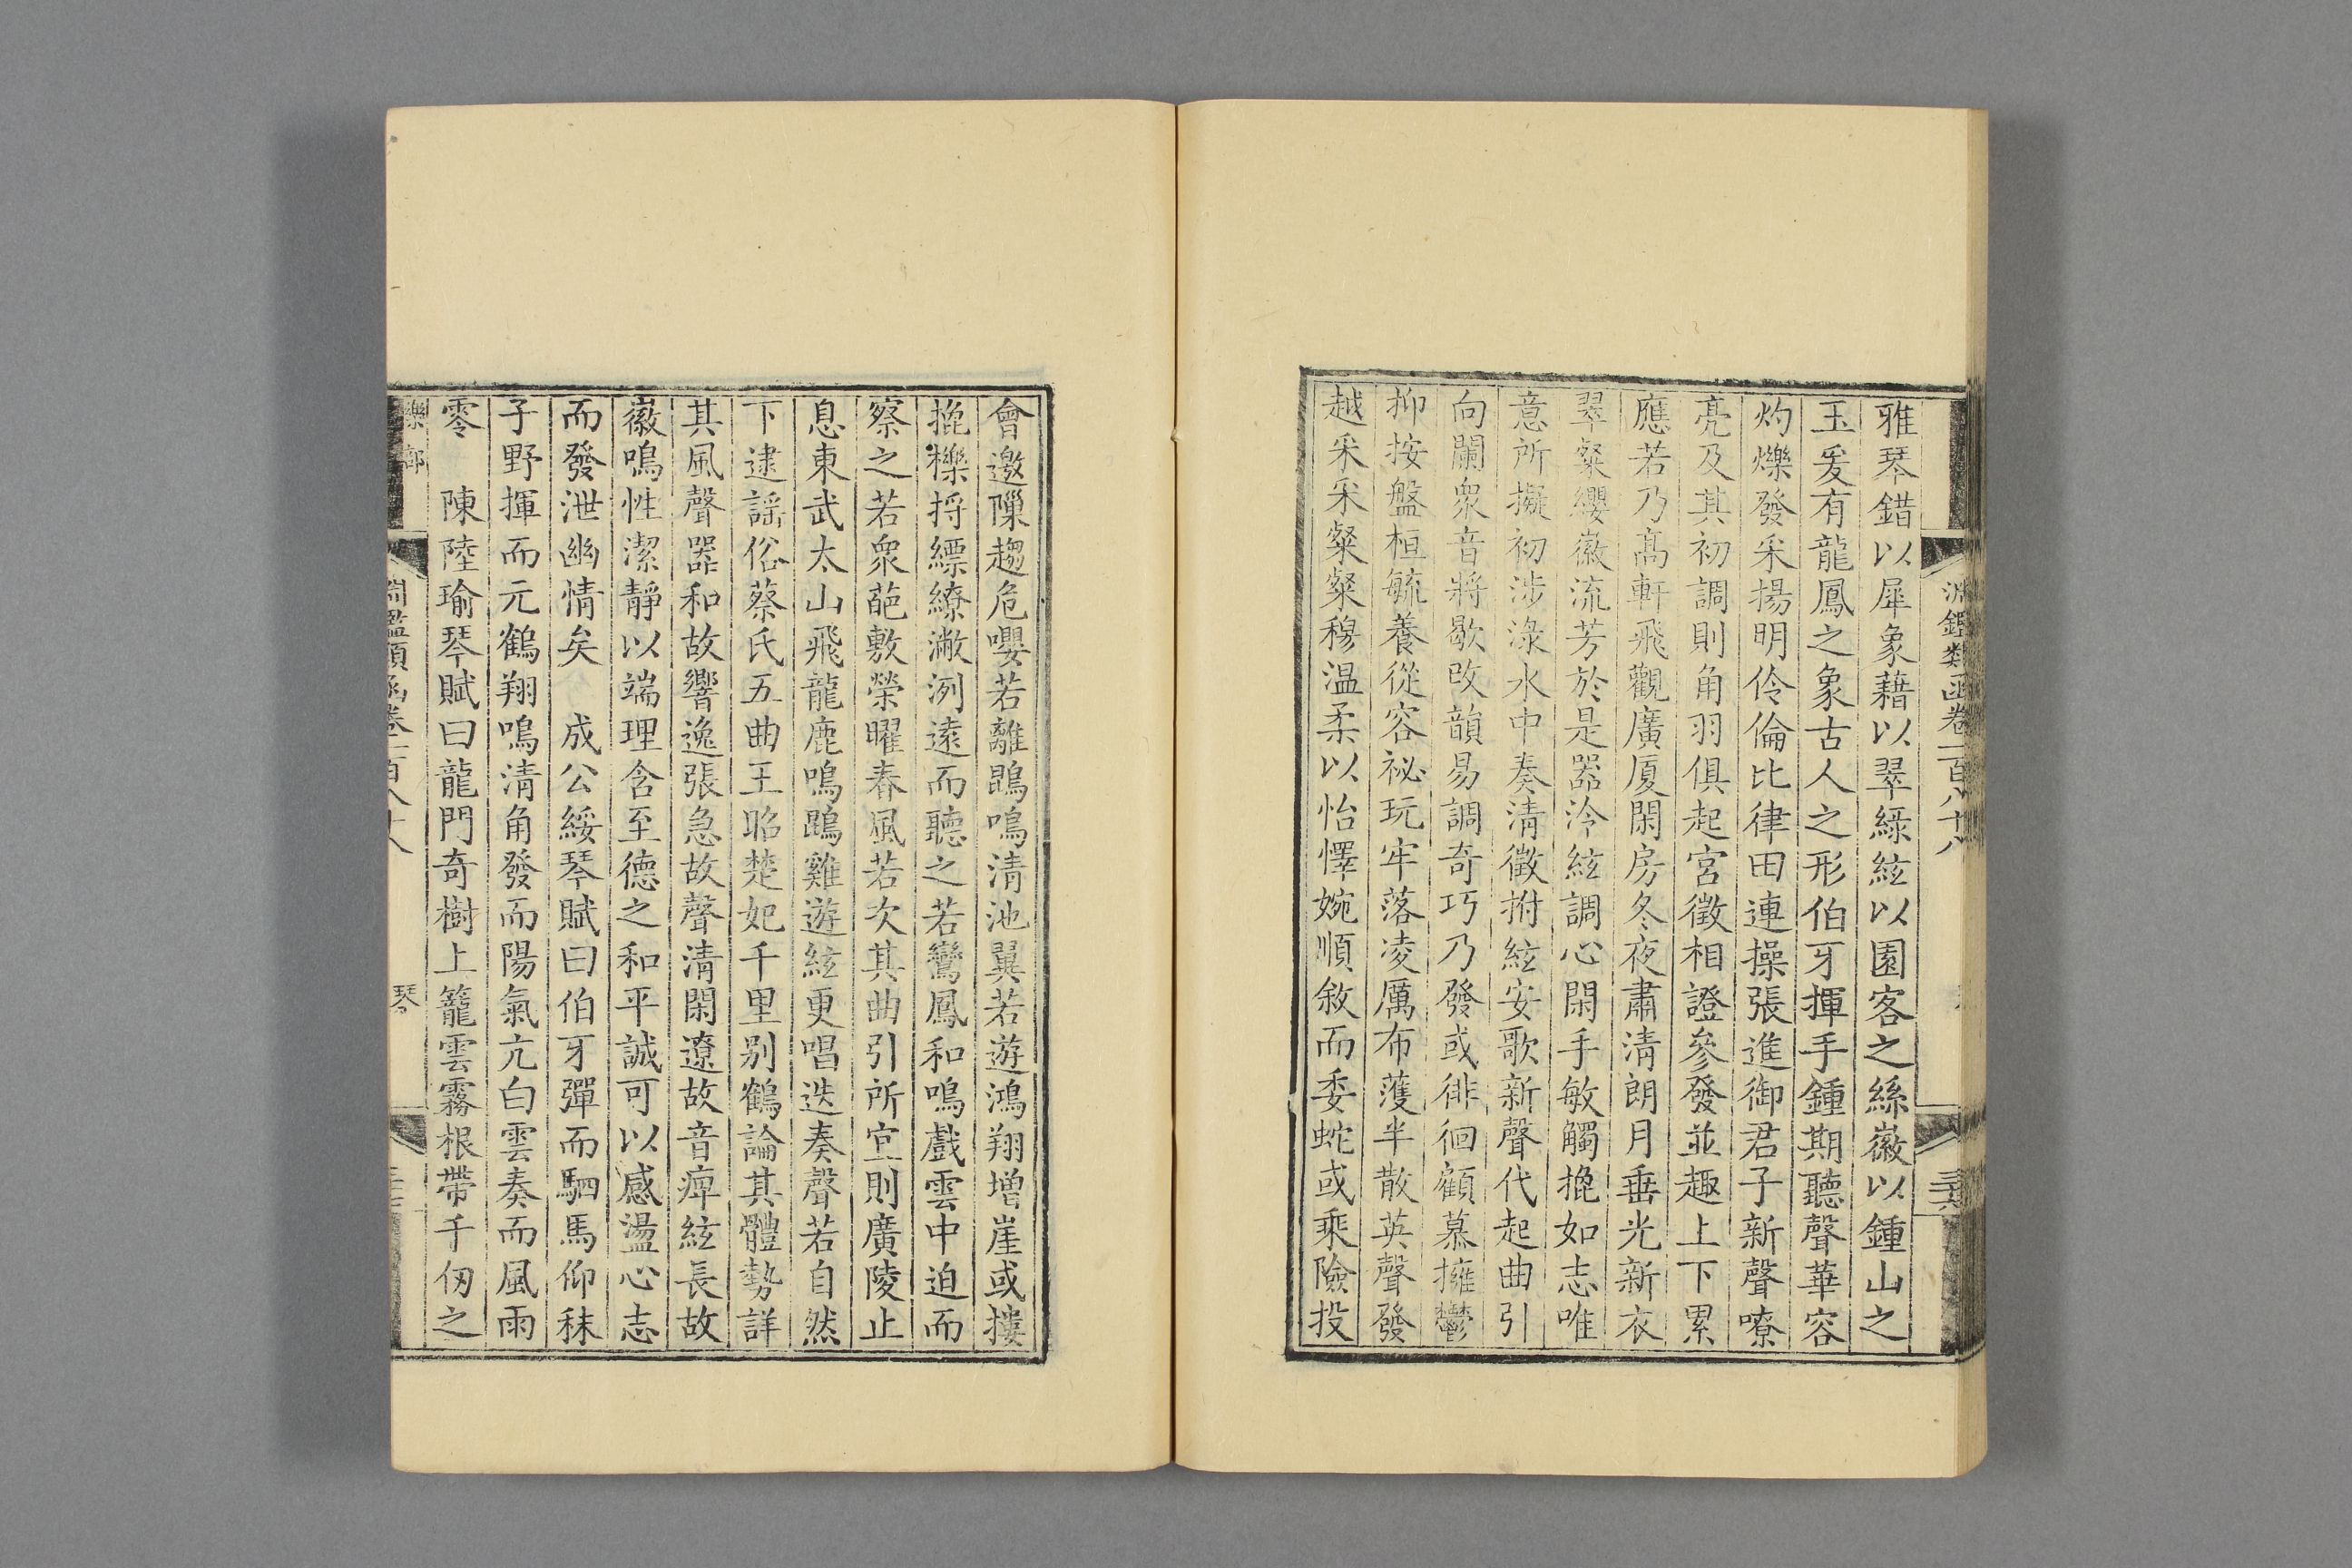 淵鑑類函卷一百八十八
三十六
雅琴錯以犀象藉以翠綠絃以園客之絲徽以鍾山之
玉爰有龍鳳之象古人之形伯牙揮手鍾期聽聲華容
灼爍發采揚明伶倫比律田連操張進御君子新聲嘹
亮及其初調則角羽俱起宮徵相證參發並趣上下累
應若乃高軒飛觀廣厦閑房冬夜肅清朗月垂光新衣
翠粲纓徽流芳於是器泠絃調心閑手敏觸㧓如志唯
意所擬初涉淥水中奏清徵拊絃安歌新聲代起曲引
向闌衆音將歇改韻易調奇巧乃發或徘徊顧慕擁鬱
抑按盤桓毓養從容祕玩牢落凌厲布濩半散英聲發
越采采粲粲穆温柔以怡懌婉順敘而委蛇或乘險投
會邀隟趨危嚶若離鵾鳴清池翼若遊鴻翔增崖或摟
㧓櫟捋縹繚潎洌遠而聽之若鸞鳳和鳴戲雲中迫而
察之若衆葩敷榮曜春風若次其曲引所宜則廣陵止
息東武太山飛龍鹿鳴鵾雞遊絃更唱迭奏聲若自然
下逮謡俗蔡氏五曲王昭楚妃千里别鶴論其體勢詳
其風聲器和故響逸張急故聲清閑遼故音痺絃長故
徽鳴性潔靜以端理含至德之和平誠可以感盪心志
而發泄幽情矣　成公綏琴賦曰伯牙彈而駟馬仰秣
子野揮而元鶴翔鳴清角發而陽氣亢白雲奏而風雨
零　陳陸瑜琴賦曰龍門奇樹上籠雲霧根帶千仞之
樂部
淵鑑類函卷一百八十八
琴